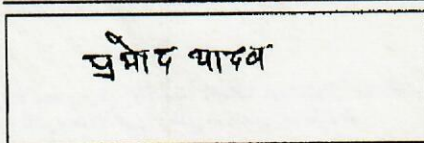 प्रमोद यादव